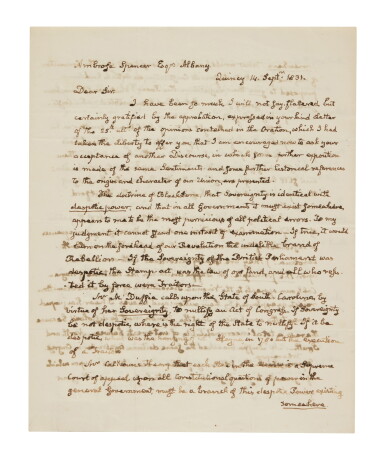 Ambrose Spencer Esqr Albany
Quincy 14. Septr 1831.
Dear Sir.
I have been so much, I will not say flattered but
certainly gratified by the approbation, expressed in your kind letter
of the 25th ult. of the opinions contained in the Oration, which I had
taken the liberty to offer you that I am encouraged now to ask your
acceptance of another Discourse, in which a further exposition
is made of the same Sentiments and some further historical references
to the origin and character of our Union, are presented.
The doctrine of Blackstone, that Sovereignty is identical with
despotic power, and that in all Governments it must exist somewhere,
appears to me to be the most pernicious of all political errors. To my
judgment it cannot stand one instant of examination. If true, it would
stamp on the forehead of our Revolution the indelible brand of
Rebellion. If the Sovereignty of the British Parliament was
despotic, the Stamp act was the law of our land, and all who resis-
ted it by force were Traitors.
Mr. McDuffie calls upon the State of South Carolina by
virtue of her Sovereignty to nullify an Act of Congress. If Sovereignty
be not despotic, where is the right of the State to nullify? If it be
despotic was the
of a Traitor
Mr. Calhoun
court of appeal upon all constitutional questions of power in the
general Government must be a branch of this despotic Power existing
somewhere